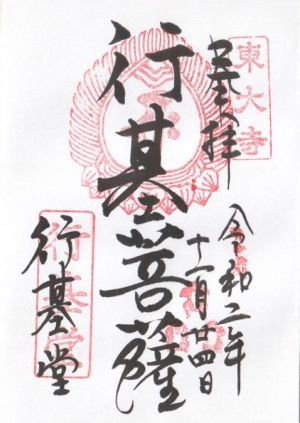 東大寺
奉拝
令和二年
十一月廿四日
行基菩薩
行基堂
行基堂